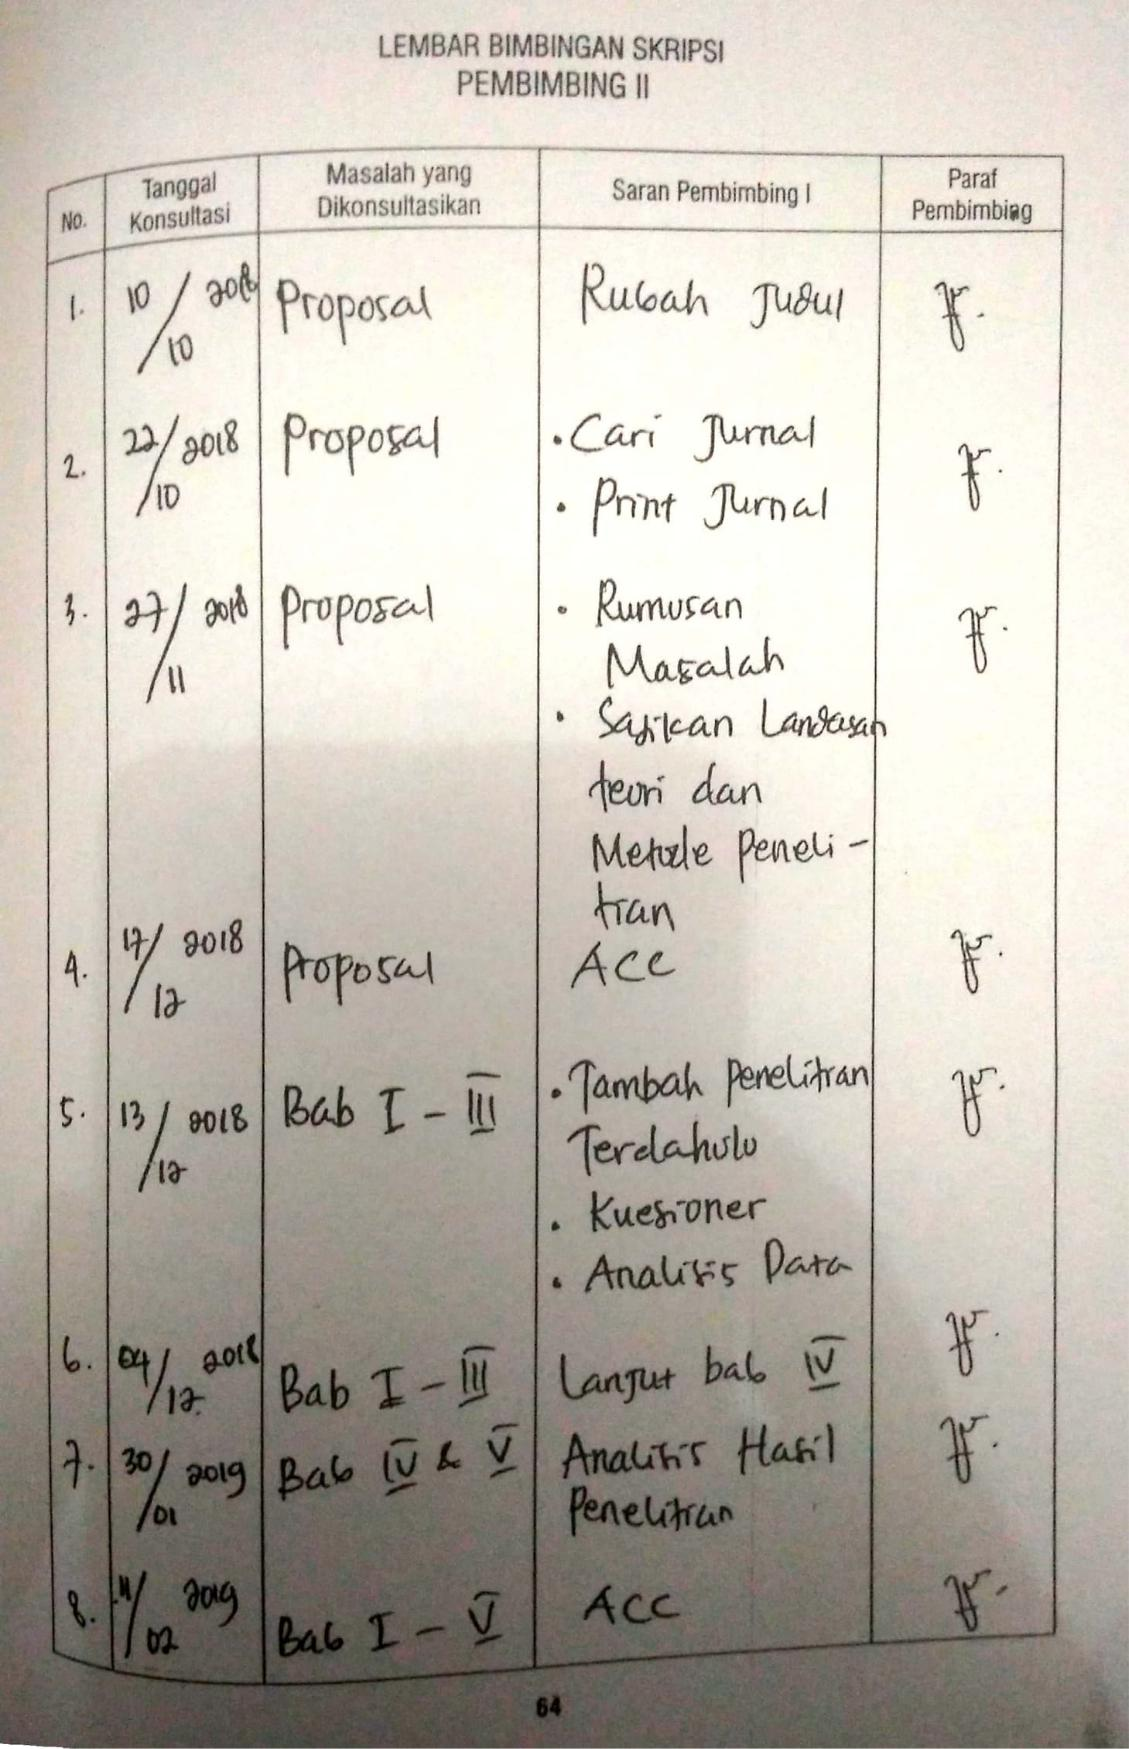 LEMBAR BIMBINGAN SKRIPSI
PEMBIMBING II
No. Tanggal Konsultasi Masalah yang Dikonsultasikan Saran Pembimbing I Paraf Pembimbing
1. 10/10 2018 Proposal Rubah Judul
2. 22/10 2018 Proposal • Cari Jurnal
• Print Jurnal
3. 27/11 2018 Proposal • Rumusan
Masalah
• Sajikan Landasan
teori dan
Metode Peneli-
tian
4. 17/12 2018 Proposal ACC
5. 13/12 2018 Bab I - III • Tambah Penelitian
Terdahulu
• Kuesioner
• Analisis Data
6. 04/12 2018 Bab I - III Lanjut bab IV
7. 30/01 2019 Bab IV & V Analisis Hasil
Penelitian
8. 11/02 2019 Bab I - V ACC
64